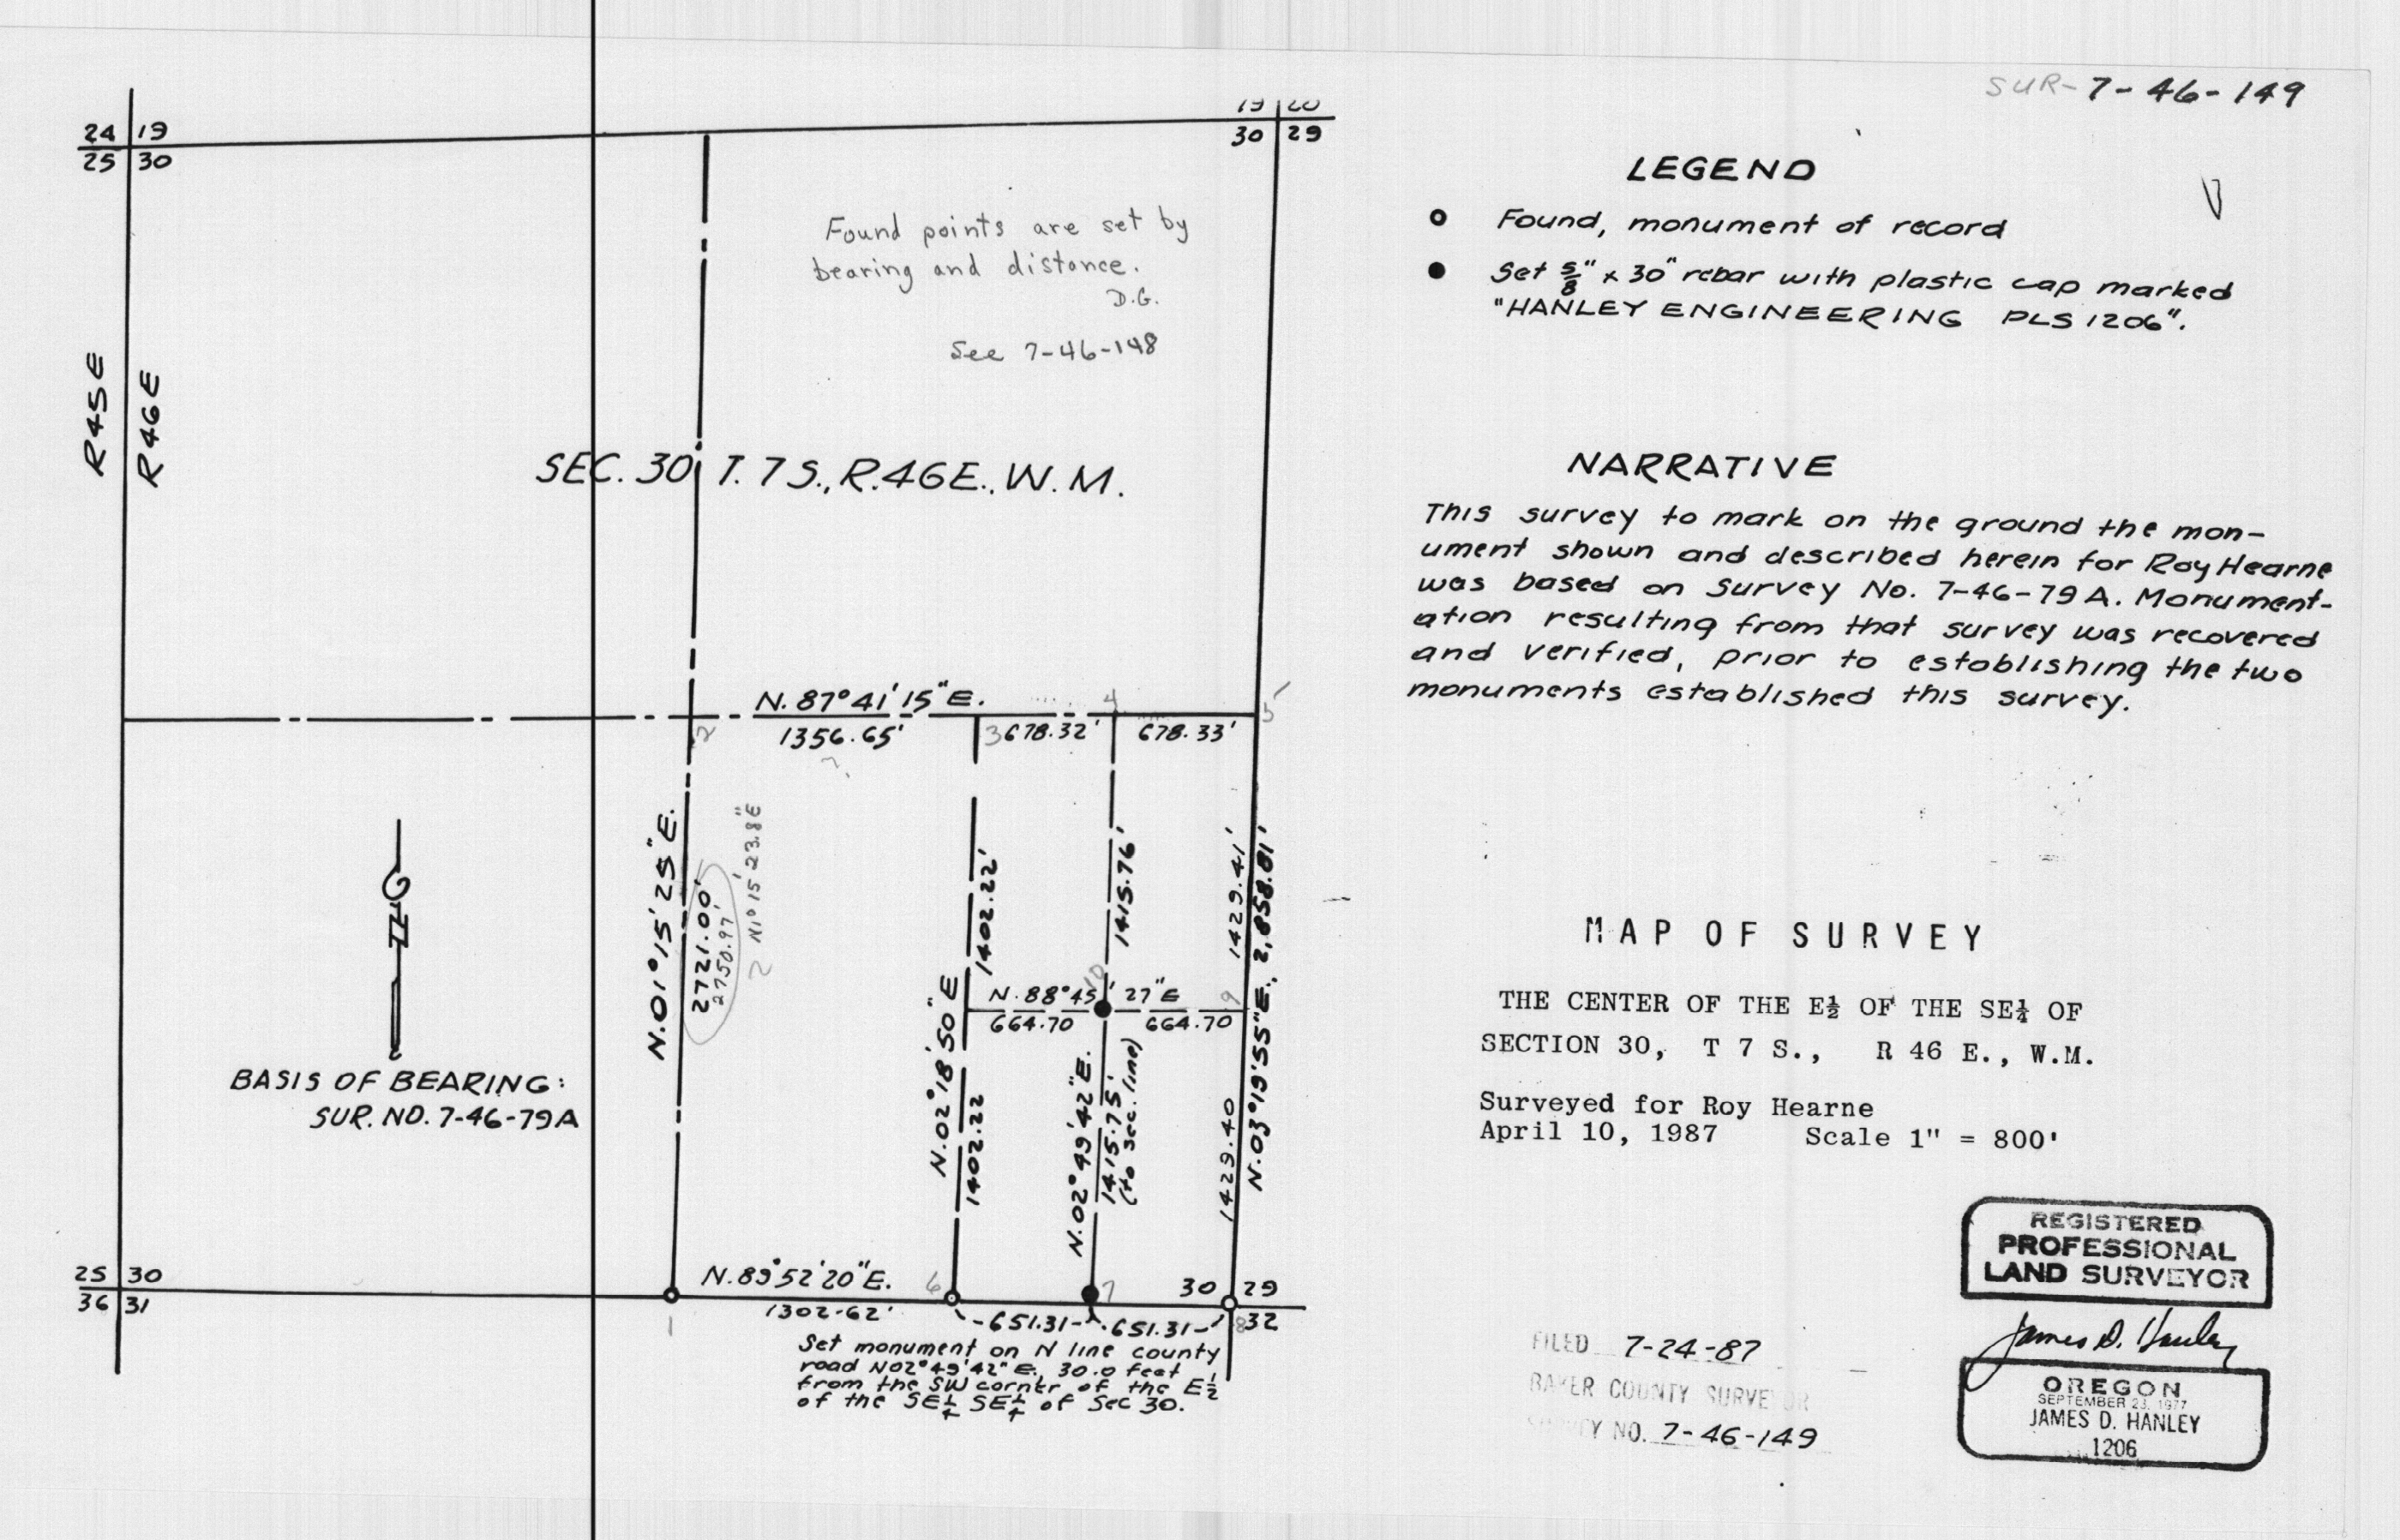 SUR-7-46-149
24 19
25 30
19 20
30 29
Found points are set by
bearing and distance.
D.G.
See 7-46-148
R45E
R46E
SEC. 30 T. 7 S., R.46E., W.M.
N. 87°41'15"E.
1356.65'
678.32'
678.33'
2
3
4
5
N.01°15'25"E.
2721.00'
2750.97'
N1°15'23.8"E
1402.22'
1415.76'
1429.41'
N.03°19'55"E., 2,858.81'
N. 88°45'27"E
664.70
664.70
10
9
N.02°18'50"E
1402.22
N.02°49'42"E.
1415.75'
(to sec. line)
1429.40
BASIS OF BEARING:
SUR. NO. 7-46-79A
25 30
36 31
N.89°52'20"E.
1302.62'
1
6
7
8
30 29
32
651.31
651.31
Set monument on N line county
road N02°49'42"E, 30.0 feet
from the SW corner of the E½
of the SE¼ SE¼ of Sec 30.
LEGEND
Found, monument of record
Set 5/8" x 30" rebar with plastic cap marked
"HANLEY ENGINEERING PLS 1206".
NARRATIVE
This survey to mark on the ground the mon-
ument shown and described herein for Roy Hearne
was based on Survey No. 7-46-79A. Monument-
ation resulting from that survey was recovered
and verified, prior to establishing the two
monuments established this survey.
MAP OF SURVEY
THE CENTER OF THE E½ OF THE SE¼ OF
SECTION 30, T 7 S., R 46 E., W.M.
Surveyed for Roy Hearne
April 10, 1987 Scale 1" = 800'
FILED 7-24-87
BAKER COUNTY SURVEYOR
SURVEY NO. 7-46-149
REGISTERED
PROFESSIONAL
LAND SURVEYOR
James D. Hanley
OREGON
SEPTEMBER 23, 1977
JAMES D. HANLEY
1206